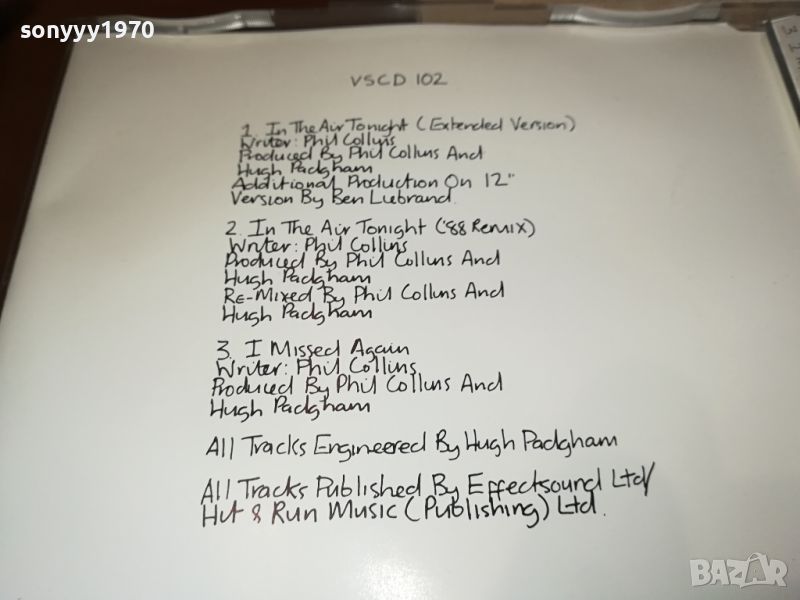 sonyyy1970
VSCD 102
1. In The Air Tonight (Extended Version)
Writer: Phil Collins
Produced By Phil Collins And
Hugh Padgham
Additional Production On 12"
Version By Ben Liebrand.
2. In The Air Tonight ('88 Remix)
Writer: Phil Collins
Produced By Phil Collins And
Hugh Padgham
Re-Mixed By Phil Collins And
Hugh Padgham
3. I Missed Again
Writer: Phil Collins
Produced By Phil Collins And
Hugh Padgham
All Tracks Engineered By Hugh Padgham
All Tracks Published By Effectsound Ltd/
Hit & Run Music (Publishing) Ltd.
BAZAR